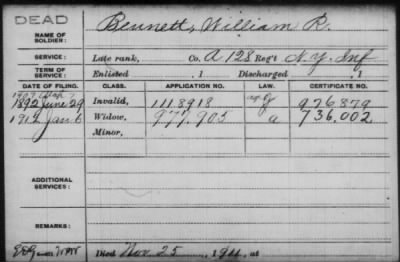 DEAD
NAME OF SOLDIER: Bennett, William R.
SERVICE: Late rank, Co. A 128 Reg't N.Y. Inf
TERM OF SERVICE: Enlisted , 1 Discharged , 1
DATE OF FILING. CLASS. APPLICATION NO. LAW. CERTIFICATE NO.
1892 June 29 Invalid, 1118918 976.879
1912 Jan 6 Widow, 977.905 a 736.002
Minor,
ADDITIONAL SERVICES:
REMARKS:
Died Nov. 25, 1911, at